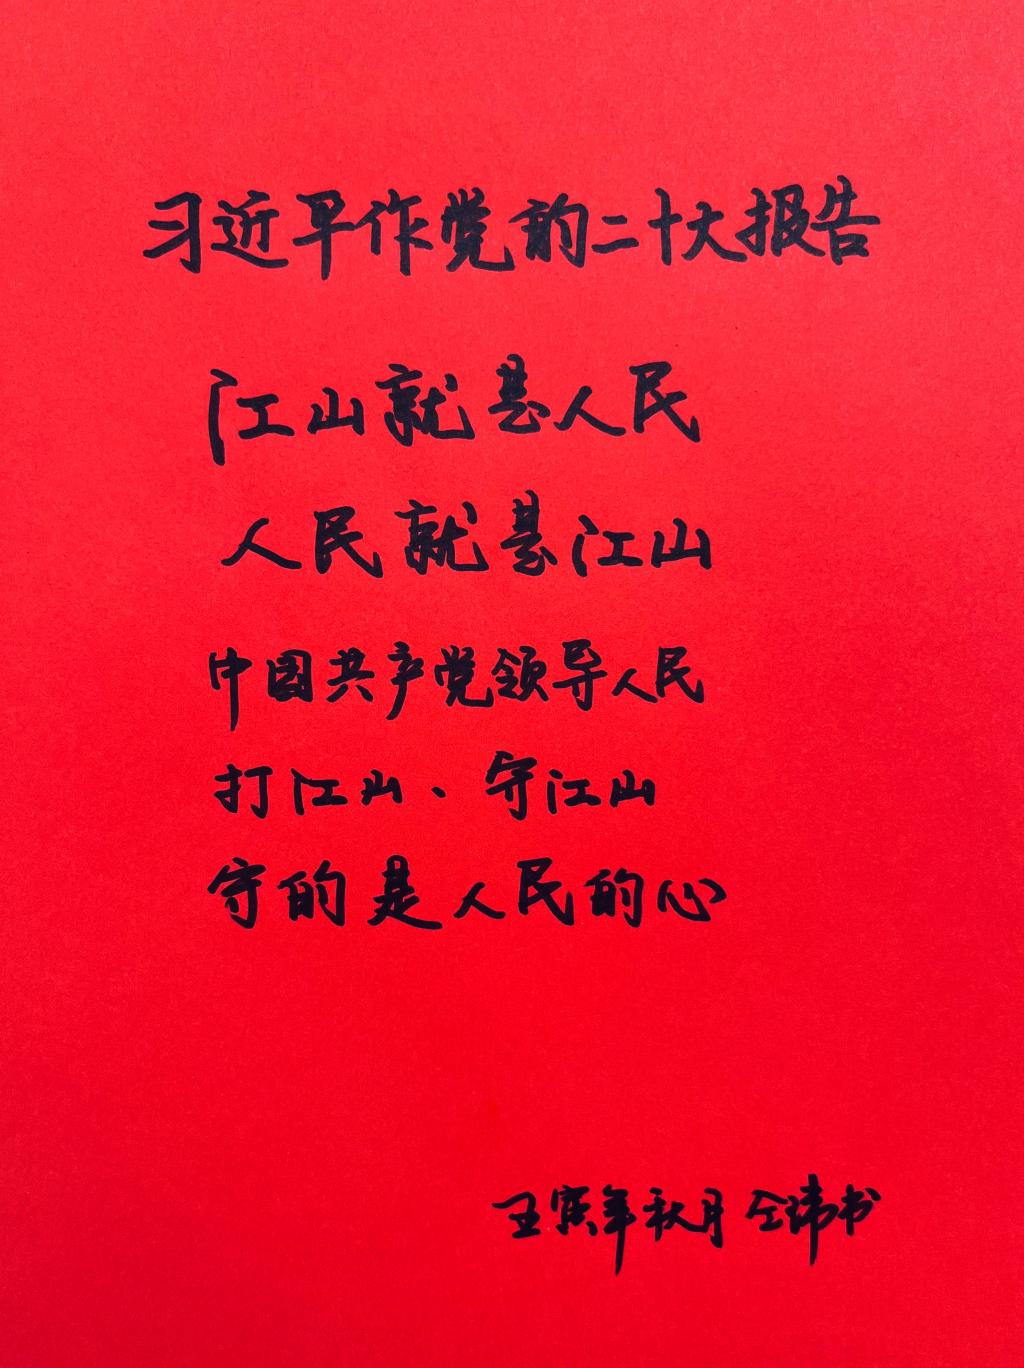 习近平作党的二十大报告
江山就是人民
人民就是江山
中国共产党领导人民
打江山、守江山
守的是人民的心
壬寅年秋月 仝玮书